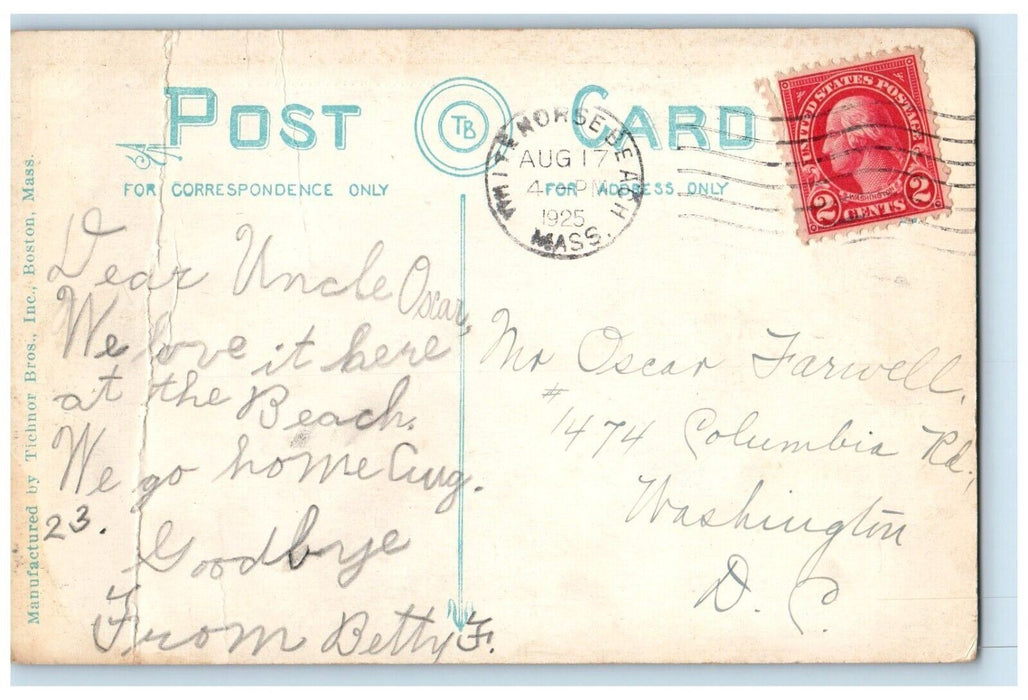 POST CARD
TB
FOR CORRESPONDENCE ONLY
FOR ADDRESS ONLY
HORSE BEACH
AUG 17
4 PM
1925
MASS.
UNITED STATES POSTAGE
WASHINGTON
2 CENTS 2
Manufactured by Tichnor Bros., Inc., Boston, Mass.
Dear Uncle Oscar,
We love it here
at the Beach.
We go home Aug.
23.
Goodbye
From Betty F.
Mr Oscar Farwell,
#1474 Columbia Rd.,
Washington
D. C.